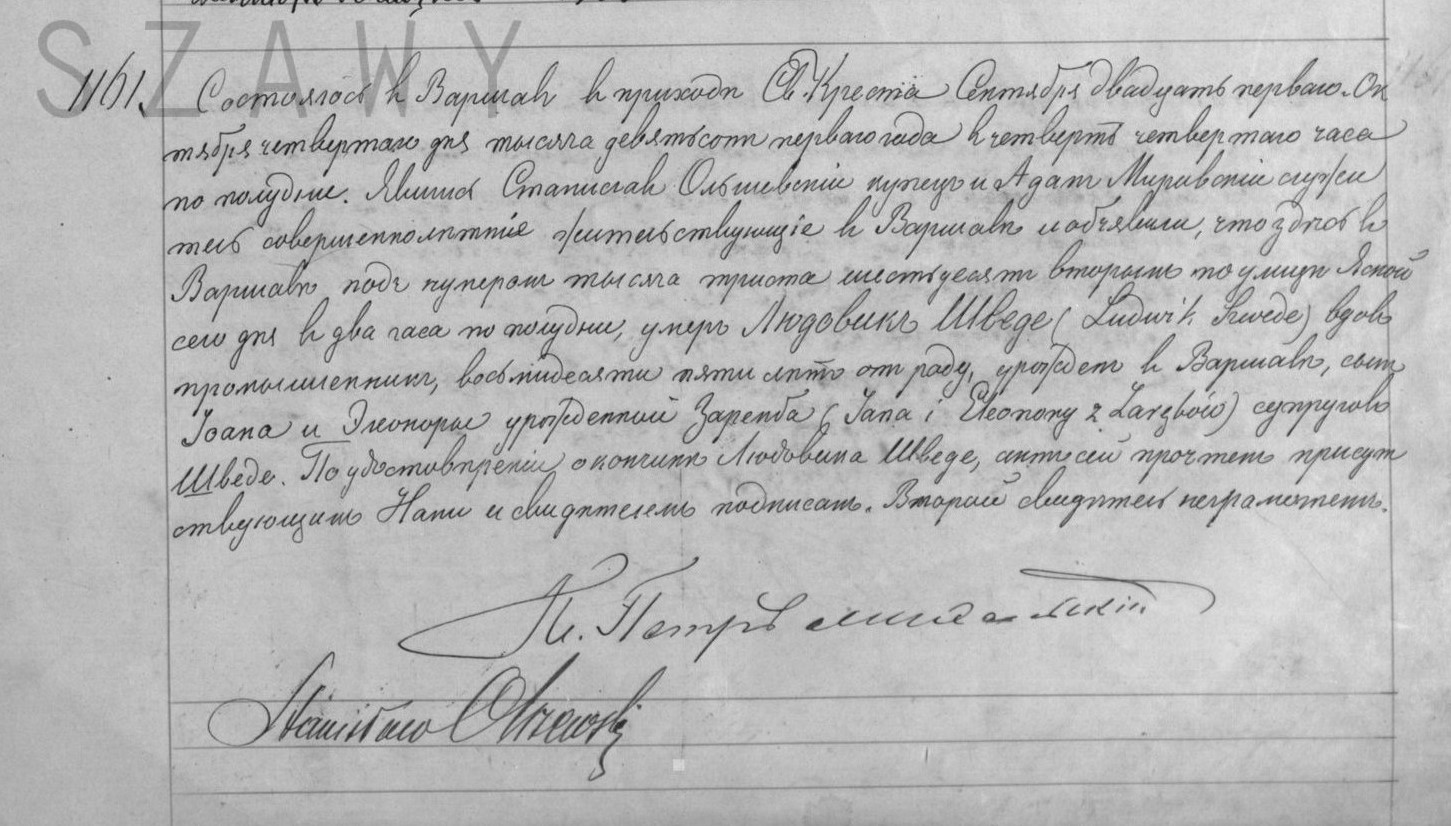 S Z A W Y
1161. Состоялось въ Варшавѣ въ приходѣ Св. Креста Сентября двадцать перваго. Ок
тября четвертаго дня тысяча девятьсотъ перваго года въ четверть четвертаго часа
по полудни. Явились Станиславъ Ольшевскій купецъ и Адамъ Миравскій служи
тель совершеннолѣтніе жительствующіе въ Варшавѣ и объявили, что здѣсь въ
Варшавѣ подъ нумеромъ тысяча триста шестьдесятъ вторымъ по улицѣ Ясной
сего дня въ два часа по полудни, умеръ Людовикъ Шведе (Ludwik Szwede) вдовъ
промышленникъ, восьмидесяти пяти лѣтъ отъ роду, урожденъ въ Варшавѣ, сынъ
Іоана и Элеоноры урожденной Заремба (Jana i Eleonory z Zarębów) супруговъ
Шведе. По удостовѣреніи о кончинѣ Людовика Шведе, актъ сей прочтенъ присут
ствующимъ Нами и свидѣтелемъ подписанъ. Второй свидѣтель неграмотенъ.
Кс. Петръ
Stanisław Olszewski